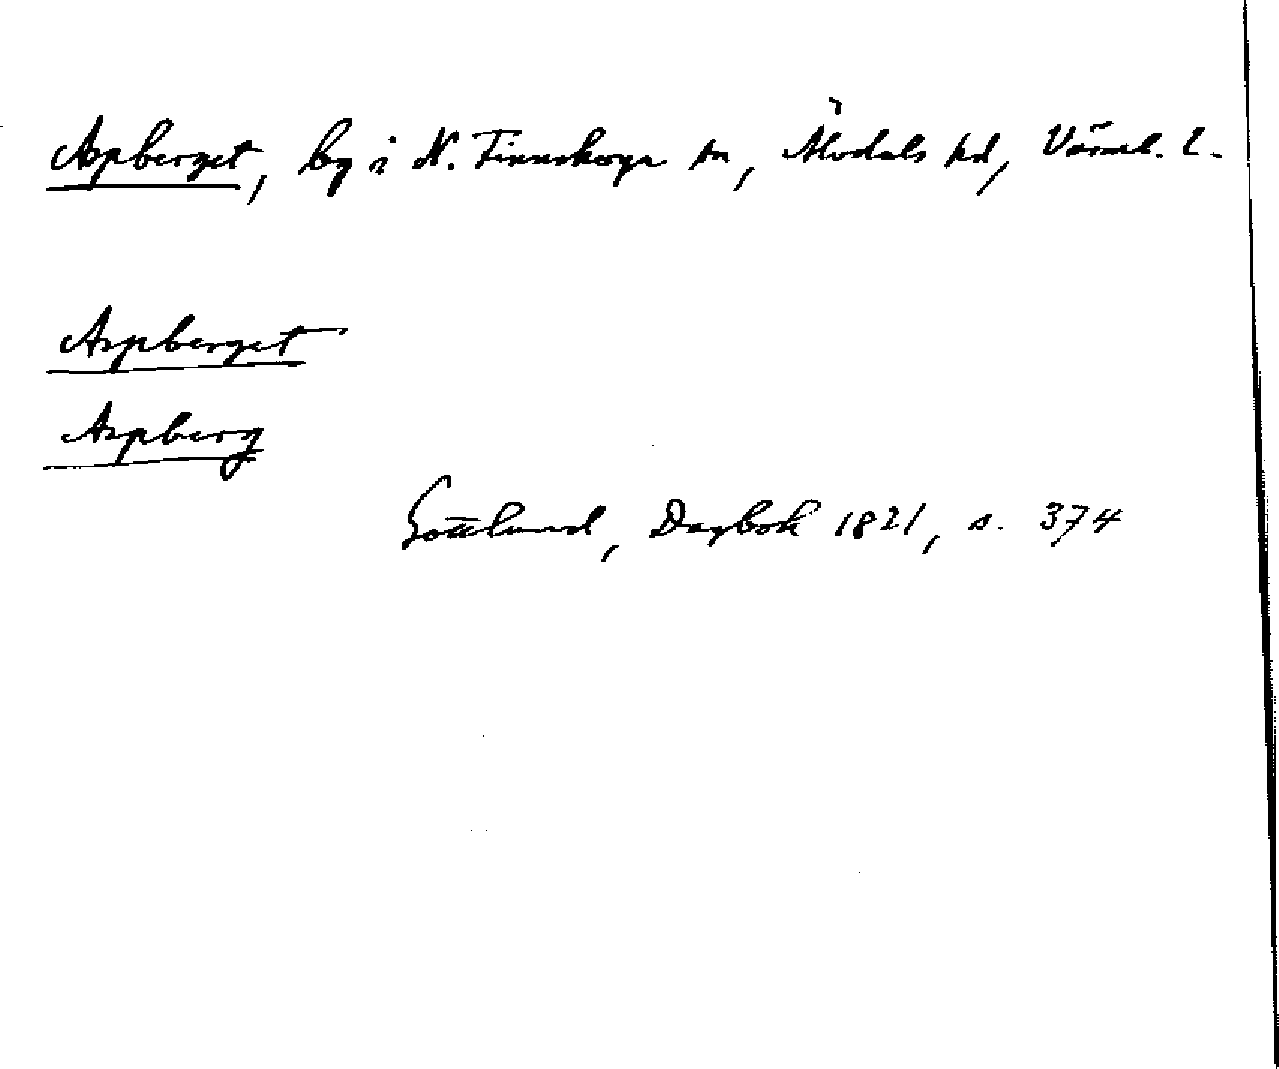 Aspberget, by i N. Finnskoga sn, Älvdals hd, Värml. l.
Aspberget
Aspberg
Gottlund, Dagbok 1821, s. 374